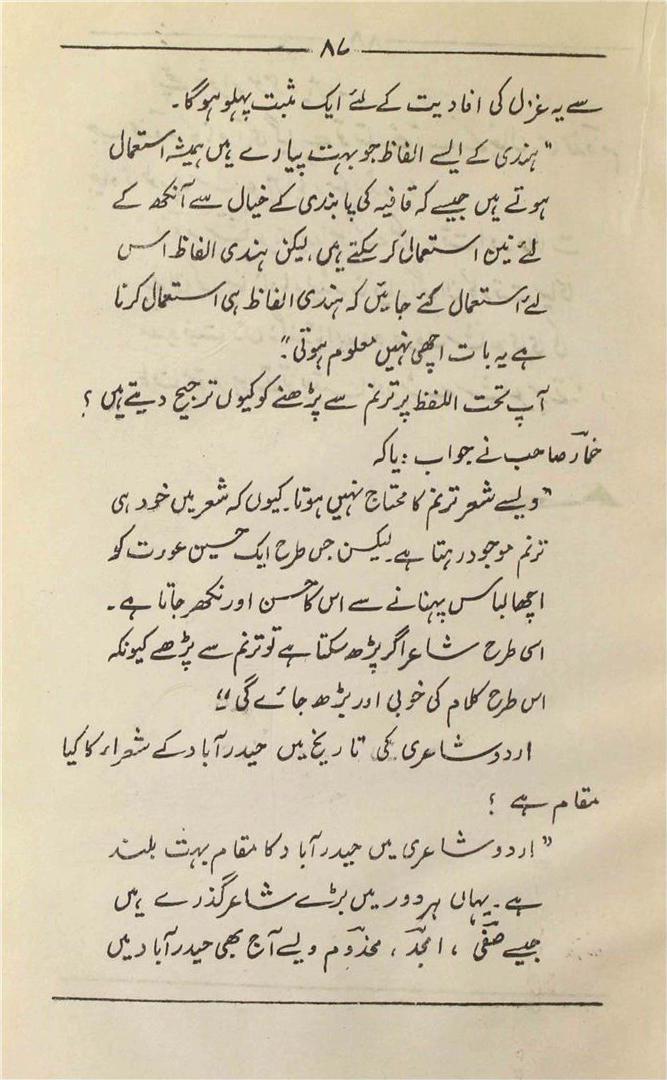 ۸۷
سے یہ غزل کی افادیت کے لئے ایک مثبت پہلو ہوگا۔
"ہندی کے ایسے الفاظ جو بہت پیارے ہیں ہمیشہ استعمال
ہوتے ہیں جیسے کہ قافیہ کی پابندی کے خیال سے آنکھ کے
لئے نین استعمال کر سکتے ہیں، لیکن ہندی الفاظ اسس
لئے استعمال کئے جائیں کہ ہندی الفاظ ہی استعمال کرنا
ہے یہ بات اچھی نہیں معلوم ہوتی"۔
آپ تحت اللفظ پر ترنم سے پڑھنے کو کیوں ترجیح دیتے ہیں ؟
خمارؔ صاحب نے جواب دیا کہ
"ویسے شعر ترنم کا محتاج نہیں ہوتا۔ کیوں کہ شعر میں خود ہی
ترنم موجود رہتا ہے۔ لیکن جس طرح ایک حسین عورت کو
اچھا لباس پہنانے سے اس کا حسن اور نکھر جاتا ہے۔
اسی طرح شاعر اگر پڑھ سکتا ہے تو ترنم سے پڑھے کیونکہ
اس طرح کلام کی خوبی اور بڑھ جائے گی"
اردو شاعری کی تاریخ میں حیدرآباد کے شعراء کا کیا
مقام ہے ؟
"اردو شاعری میں حیدرآباد کا مقام بہت بلند
ہے۔ یہاں ہر دور میں بڑے شاعر گذرے ہیں
جیسے صفیؔ ، امجدؔ ، مخدومؔ ویسے آج بھی حیدرآباد میں